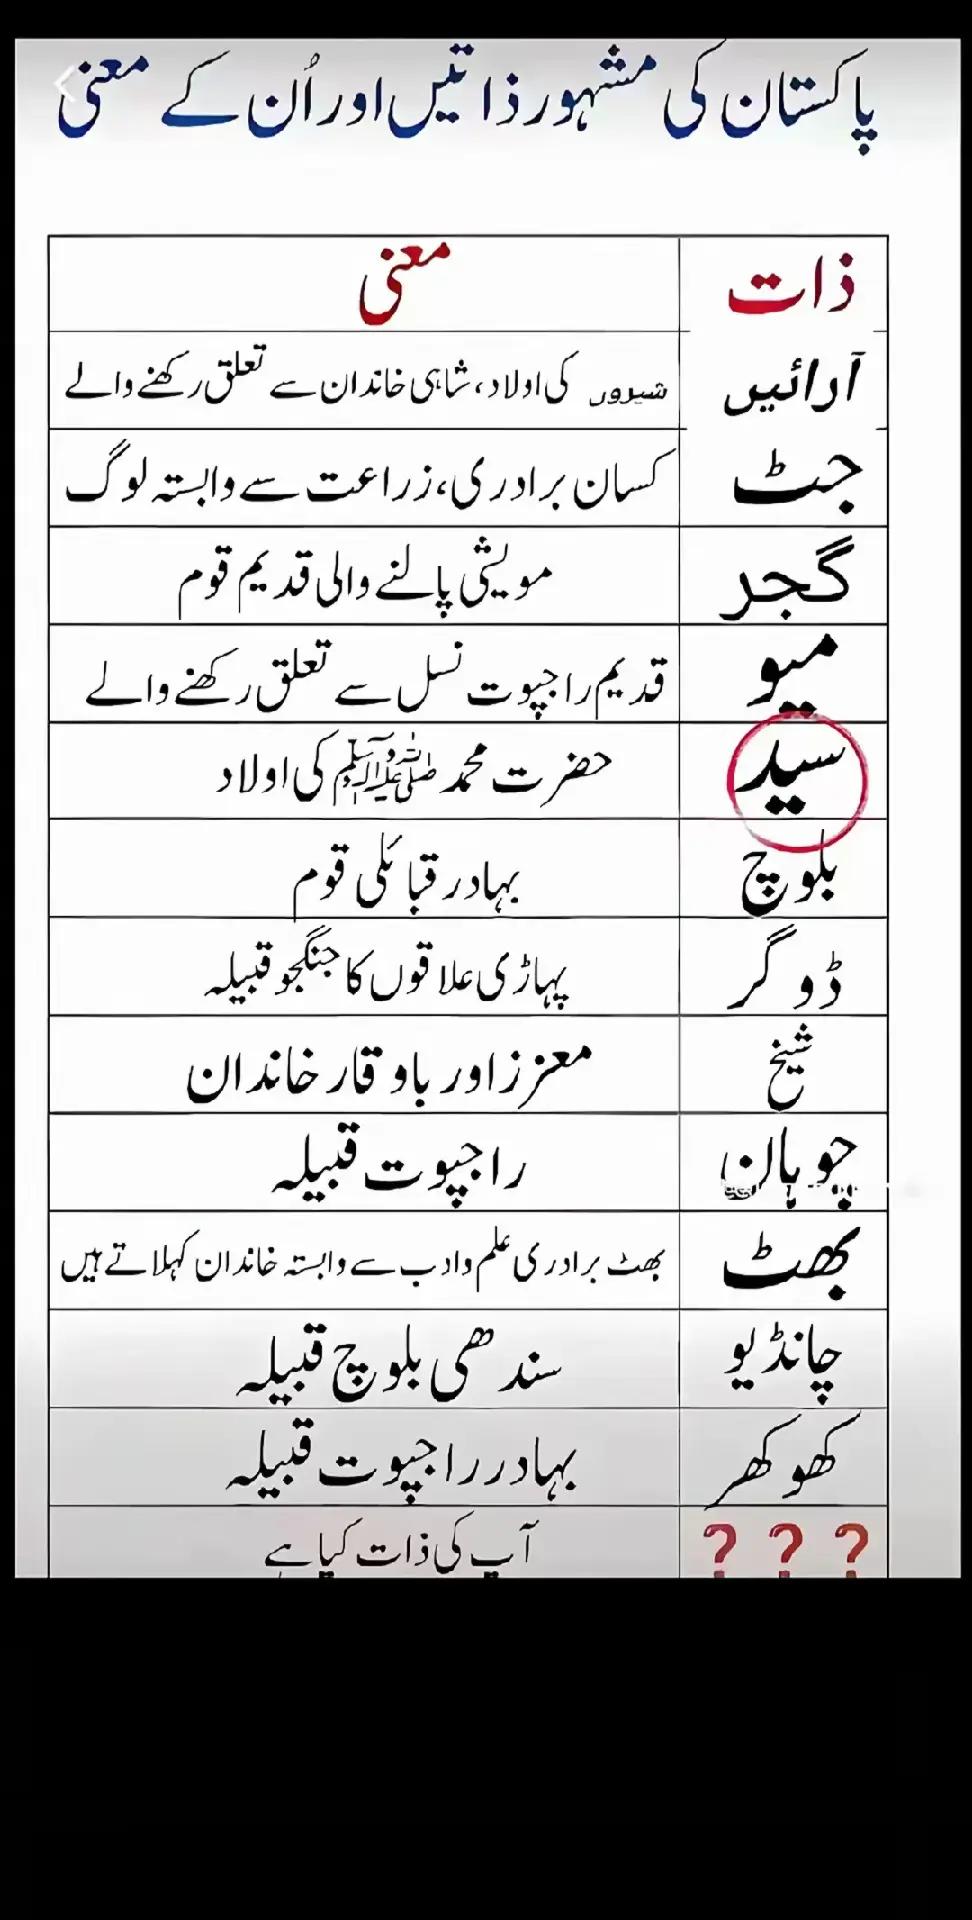 پاکستان کی مشہور ذاتیں اور اُن کے معنی
ذات معنی
آرائیں شیروں کی اولاد، شاہی خاندان سے تعلق رکھنے والے
جٹ کسان برادری، زراعت سے وابستہ لوگ
گجر مویشی پالنے والی قدیم قوم
میو قدیم راجپوت نسل سے تعلق رکھنے والے
سید حضرت محمد ﷺ کی اولاد
بلوچ بہادر قبائلی قوم
ڈوگر پہاڑی علاقوں کا جنگجو قبیلہ
شیخ معزز اور باوقار خاندان
چوہان راجپوت قبیلہ
بھٹ بھٹ برادری علم و ادب سے وابستہ خاندان کہلاتے ہیں
چانڈیو سندھی بلوچ قبیلہ
کھوکھر بہادر راجپوت قبیلہ
? ? ? آپ کی ذات کیا ہے